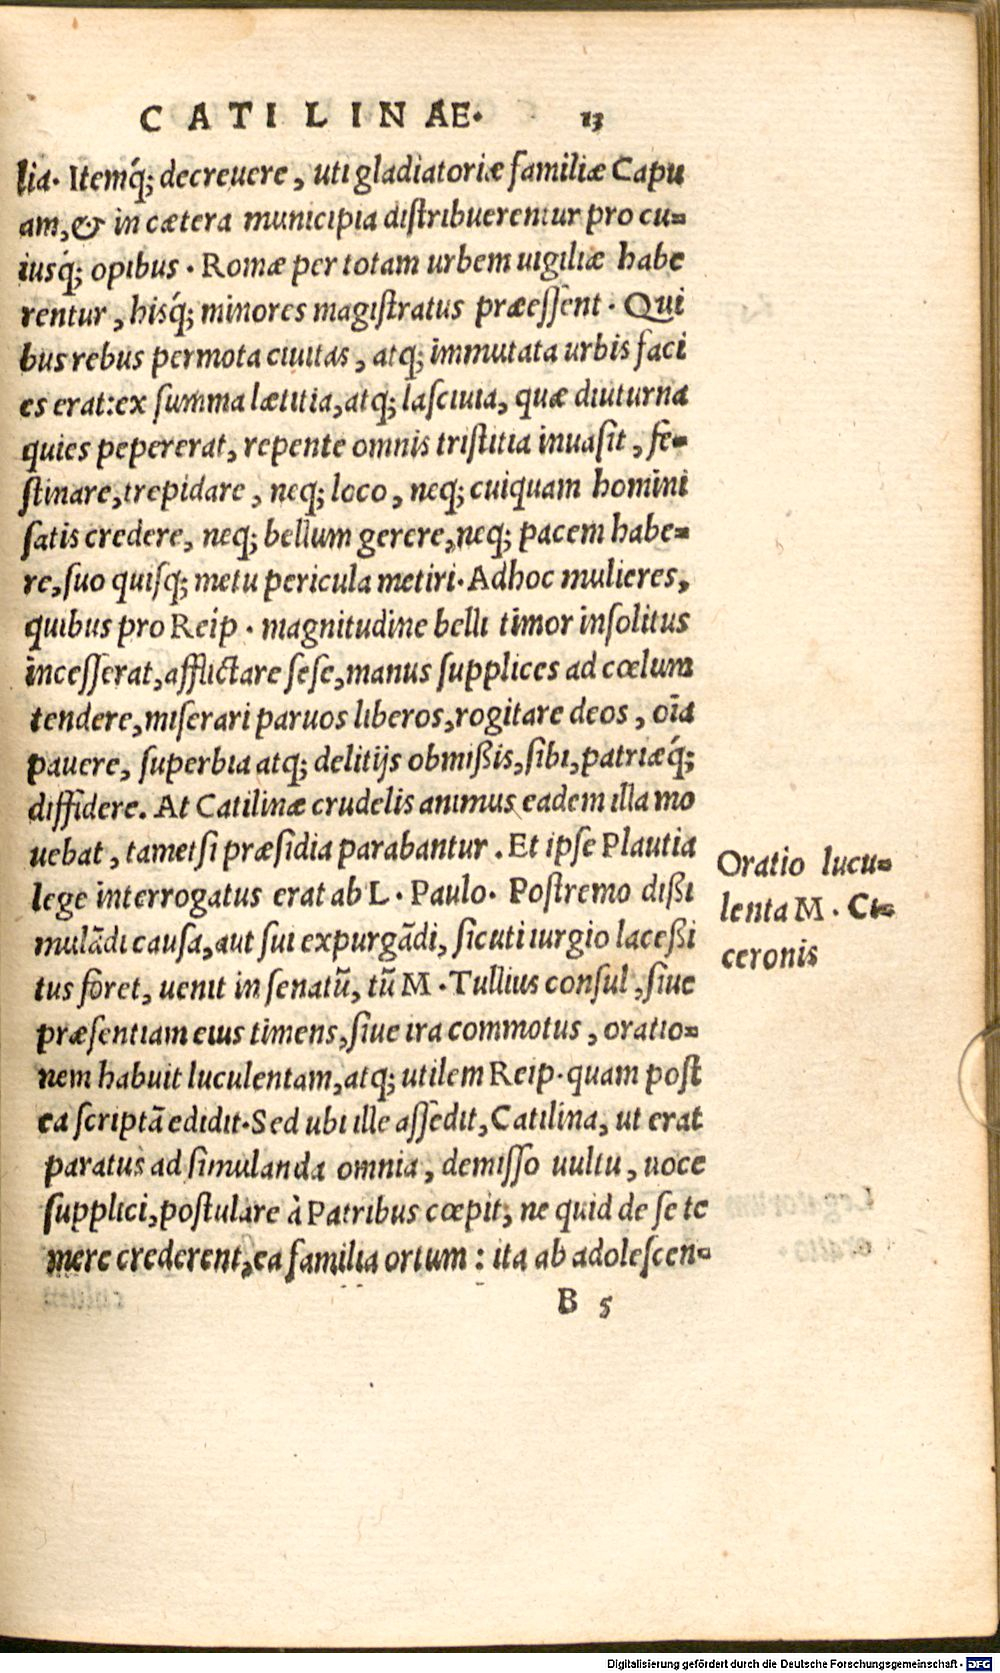 CATILINAE. 13
lia. Itemq́; decreuere, uti gladiatoriæ familiæ Capu
am, & in cætera municipia distribuerentur pro cu=
iusq́; opibus. Romæ per totam urbem uigiliæ habe
rentur, hisq́; minores magistratus præessent. Qui
bus rebus permota ciuitas, atq; immutata urbis faci
es erat: ex summa lætitia, atq; lasciuia, quæ diuturna
quies pepererat, repente omnis tristitia inuasit, fe=
stinare, trepidare, neq; loco, neq; cuiquam homini
satis credere, neq; bellum gerere, neq; pacem habe=
re, suo quisq; metu pericula metiri. Adhoc mulieres,
quibus pro Reip. magnitudine belli timor insolitus
incesserat, afflictare sese, manus supplices ad cœlum
tendere, miserari paruos liberos, rogitare deos, oīa
pauere, superbia atq; delitijs obmißis, sibi, patriæq́;
diffidere. At Catilinæ crudelis animus eadem illa mo
uebat, tametsi præsidia parabantur. Et ipse Plautia
lege interrogatus erat ab L. Paulo. Postremo dißi
mulādi causa, aut sui expurgādi, sicuti iurgio laceßi
tus foret, uenit in senatū, tū M. Tullius consul, siue
præsentiam eius timens, siue ira commotus, oratio=
nem habuit luculentam, atq; utilem Reip. quam post
ea scriptā edidit. Sed ubi ille assedit, Catilina, ut erat
paratus ad simulanda omnia, demisso uultu, uoce
supplici, postulare à Patribus cœpit, ne quid de se te
mere crederent, ea familia ortum: ita ab adolescen=
B 5
Oratio lucu=
lenta M. Ci=
ceronis
Digitalisierung gefördert durch die Deutsche Forschungsgemeinschaft - DFG